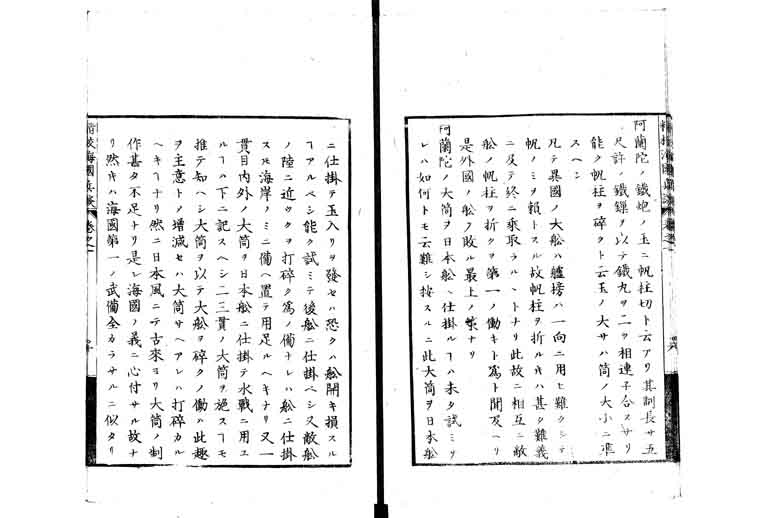 阿蘭陀ノ鐵炮ノ玉ニ帆柱切ト云アリ其訓長サ五
尺許ノ鐵鏁ヲ以テ鐵丸ヲ二ツ相連子合スサリ
能ク帆柱ヲ碎クト云玉ノ大サハ筒ノ大小ニ準
スヘシ
凡テ異國ノ大舩ハ艫擈ハ一向ニ用ヒ難ク
帆ノミヲ頼トスル故帆柱ヲ折ルキハ甚タ難義
ニ及テ終ニ乗取ラルヽトナリ此故ニ相互ニ敵
舩ノ帆柱ヲ折クヲ第一ノ働キト為ト聞及ヘリ
是外國ノ舩ノ敗ル最上ノ業ナリ
阿蘭陀ノ大筒ヲ日本舩ヘ仕掛ルヿハ未タ試ミサ
レハ如何トモ云難シ按スルニ此大筒ヲ日本舩
ニ仕掛テ玉入リヲ發セハ恐クハ舩開キ損スル
ヿアルベシ能ク試ミテ後舩ニ仕掛ベシ又敵舩
ノ陸ニ近ツクヲ打碎ク為ノ備ナレハ舩ニ仕掛
スル海岸ノミニ備ヘ置テ用足ルヘキナリ又一
貫目内外ノ大筒ヲ日本舩ニ仕掛テ水戰ニ用ユ
ルヿハ下ニ記スヘシ二三貫ノ大筒ヲ施スヿモ
推テ知ヘシ大筒ヲ以テ大舩ヲ碎クノ働ハ此趣
ヲ主意トノ増減セハ大筒サヘアレハ打碎カル
ヘキヿナリ然ニ日本風ニテ古來ヨリ大筒ノ制
作甚タ不足ナリ是レ海國ノ義ニ心付サル故ナ
リ然キハ海國第一ノ武備全カラサルニ似タリ